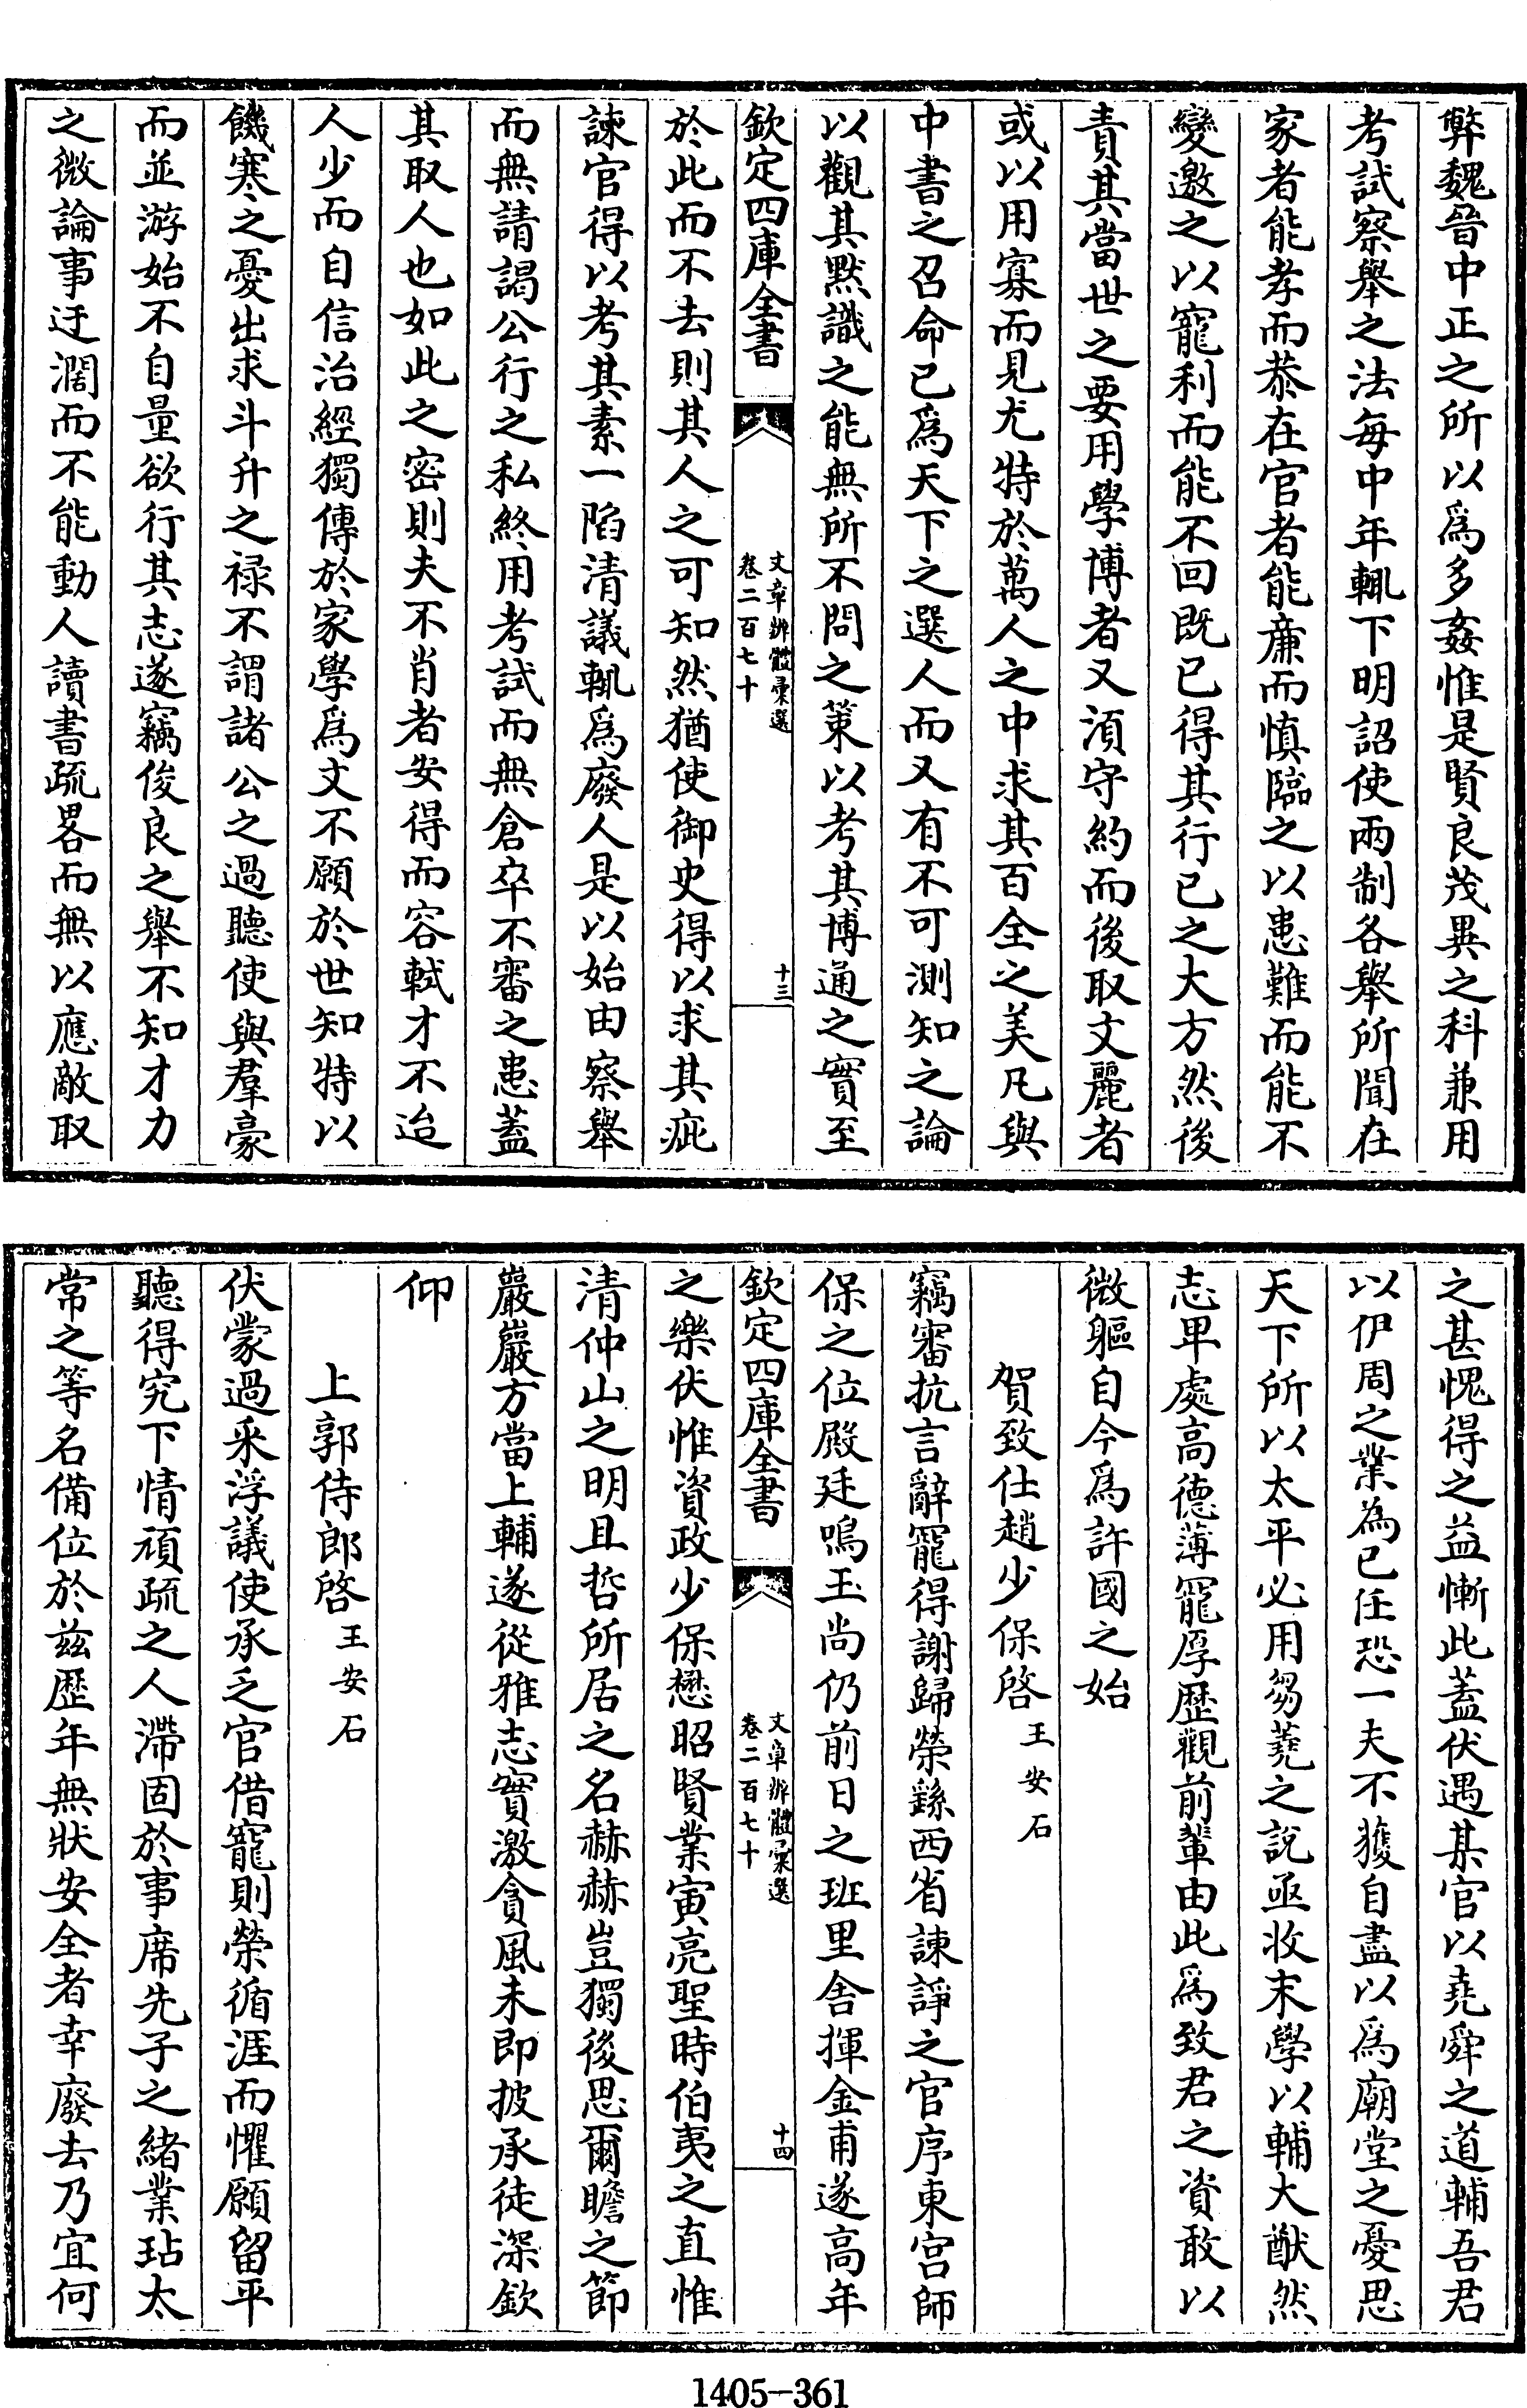 弊魏晉中正之所以爲多姦惟是賢良茂異之科兼用
考試察舉之法每中年輒下明詔使兩制各舉所聞在
家者能孝而恭在官者能廉而慎臨之以患難而能不
變邀之以寵利而能不回既已得其行已之大方然後
責其當世之要用學博者又湏守約而後取文麗者
或以用寡而見尤特於萬人之中求其百全之美凡與
中書之召命已爲天下之選人而又有不可測知之論
以觀其默識之能無所不問之策以考其博通之實至
欽定四庫全書
文章辨體彙選
卷二百七十
十三
於此而不去則其人之可知然猶使御史得以求其疵
諫官得以考其素一陷清議輒爲廢人是以始由察舉
而無請謁公行之私終用考試而無倉卒不審之患蓋
其取人也如此之密則夫不肖者安得而容軾才不迨
人少而自信治經獨傳於家學爲文不願於世知特以
饑寒之憂出求斗升之祿不謂諸公之過聽使與羣豪
而並游始不自量欲行其志遂竊俊良之舉不知才力
之微論事迂濶而不能動人讀書疏畧而無以應敵取
之甚愧得之益慚此蓋伏遇某官以堯舜之道輔吾君
以伊周之業為已任恐一夫不獲自盡以爲廟堂之憂思
天下所以太平必用芻蕘之說亟收末學以輔大猷然
志卑處高德薄寵厚歷觀前輩由此爲致君之資敢以
微軀自今爲許國之始
賀致仕趙少保啓王安石
竊審抗言辭寵得謝歸榮繇西省諫諍之官序東宮師
保之位殿廷鳴玉尚仍前日之班里舍揮金甫遂高年
欽定四庫全書
文章辨體彙選
卷二百七十
十四
之樂伏惟資政少保懋昭賢業寅亮聖時伯夷之直惟
清仲山之明且哲所居之名赫赫豈獨後思爾瞻之節
巖巖方當上輔遂從雅志實激貪風未即披承徒深欽
仰
上郭侍郎啓王安石
伏蒙過采浮議使承乏官借寵則榮循涯而懼願留平
聽得究下情頑疏之人滯固於事席先子之緒業玷太
常之等名備位於茲歷年無狀安全者幸廢去乃宜何
1405-361